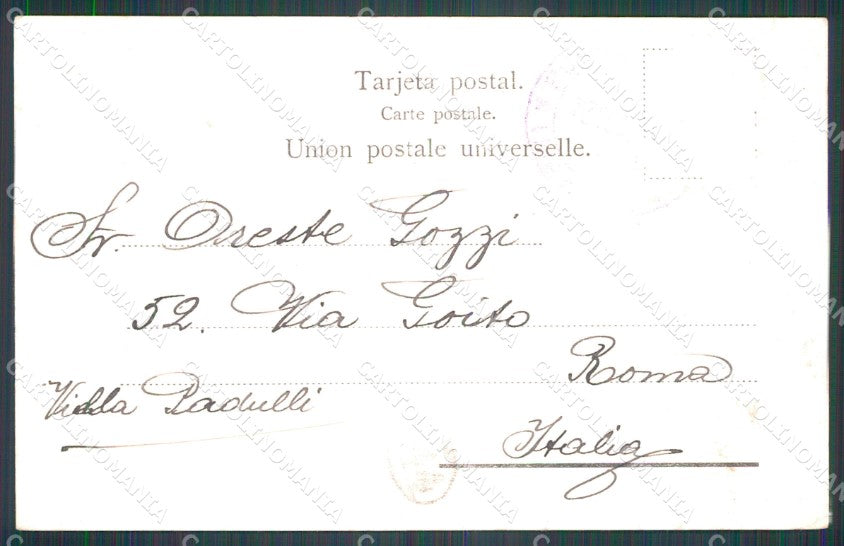 Tarjeta postal.
Carte postale.
Union postale universelle.
Sr. Oreste Gozzi
52. Via Goito
Roma
Villa Padulli
Italia
CARTOLINOMANIA